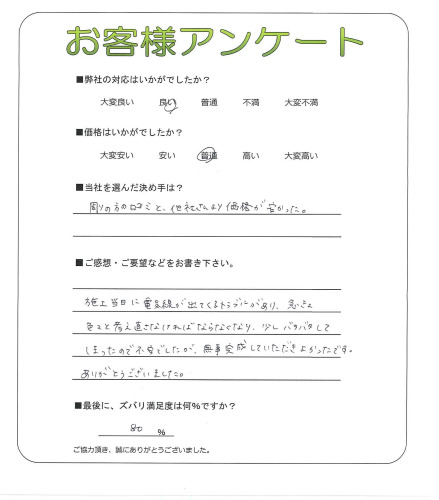 お客様アンケート
■弊社の対応はいかがでしたか？
大変良い 良い 普通 不満 大変不満
■価格はいかがでしたか？
大変安い 安い 普通 高い 大変高い
■当社を選んだ決め手は？
周りの方の口コミと、他社さんより価格が安かった。
■ご感想・ご要望などをお書き下さい。
施工当日に電気線が出てくるトラブルがあり、急きょ
色々と考え直さなければならなくなり、少しバタバタして
しまったので不安でしたが、無事完成していただきよかったです。
ありがとうございました。
■最後に、ズバリ満足度は何％ですか？
80 ％
ご協力頂き、誠にありがとうございました。